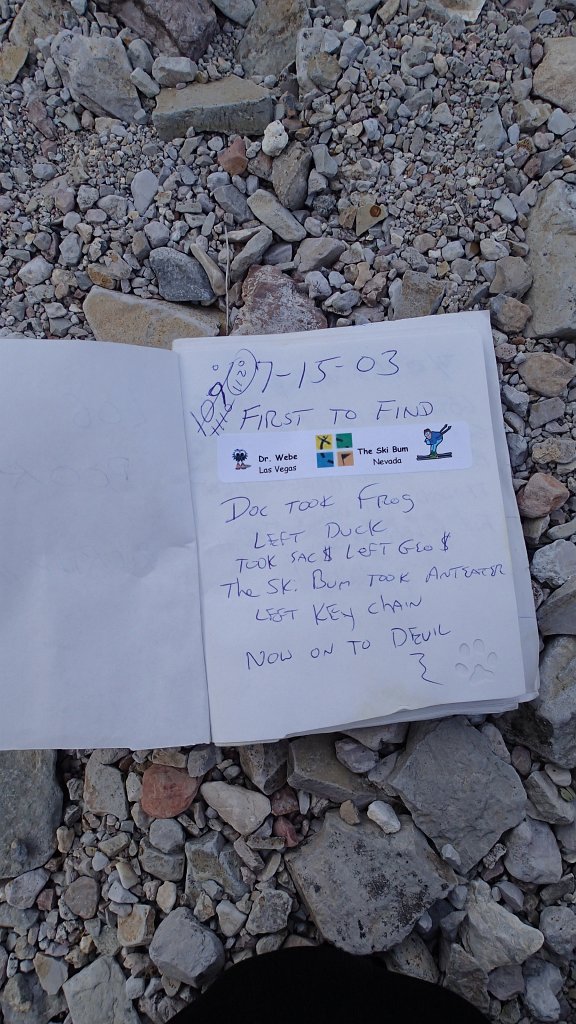 109° 7-15-03
FIRST TO FIND
Dr. Webe
Las Vegas
The Ski Bum
Nevada
Doc TOOK FROG
LEFT DUCK
TOOK SAC$ LEFT GEO$
The SKi Bum TOOK ANTEATER
LEFT KEY CHAIN
NOW ON TO DEVIL